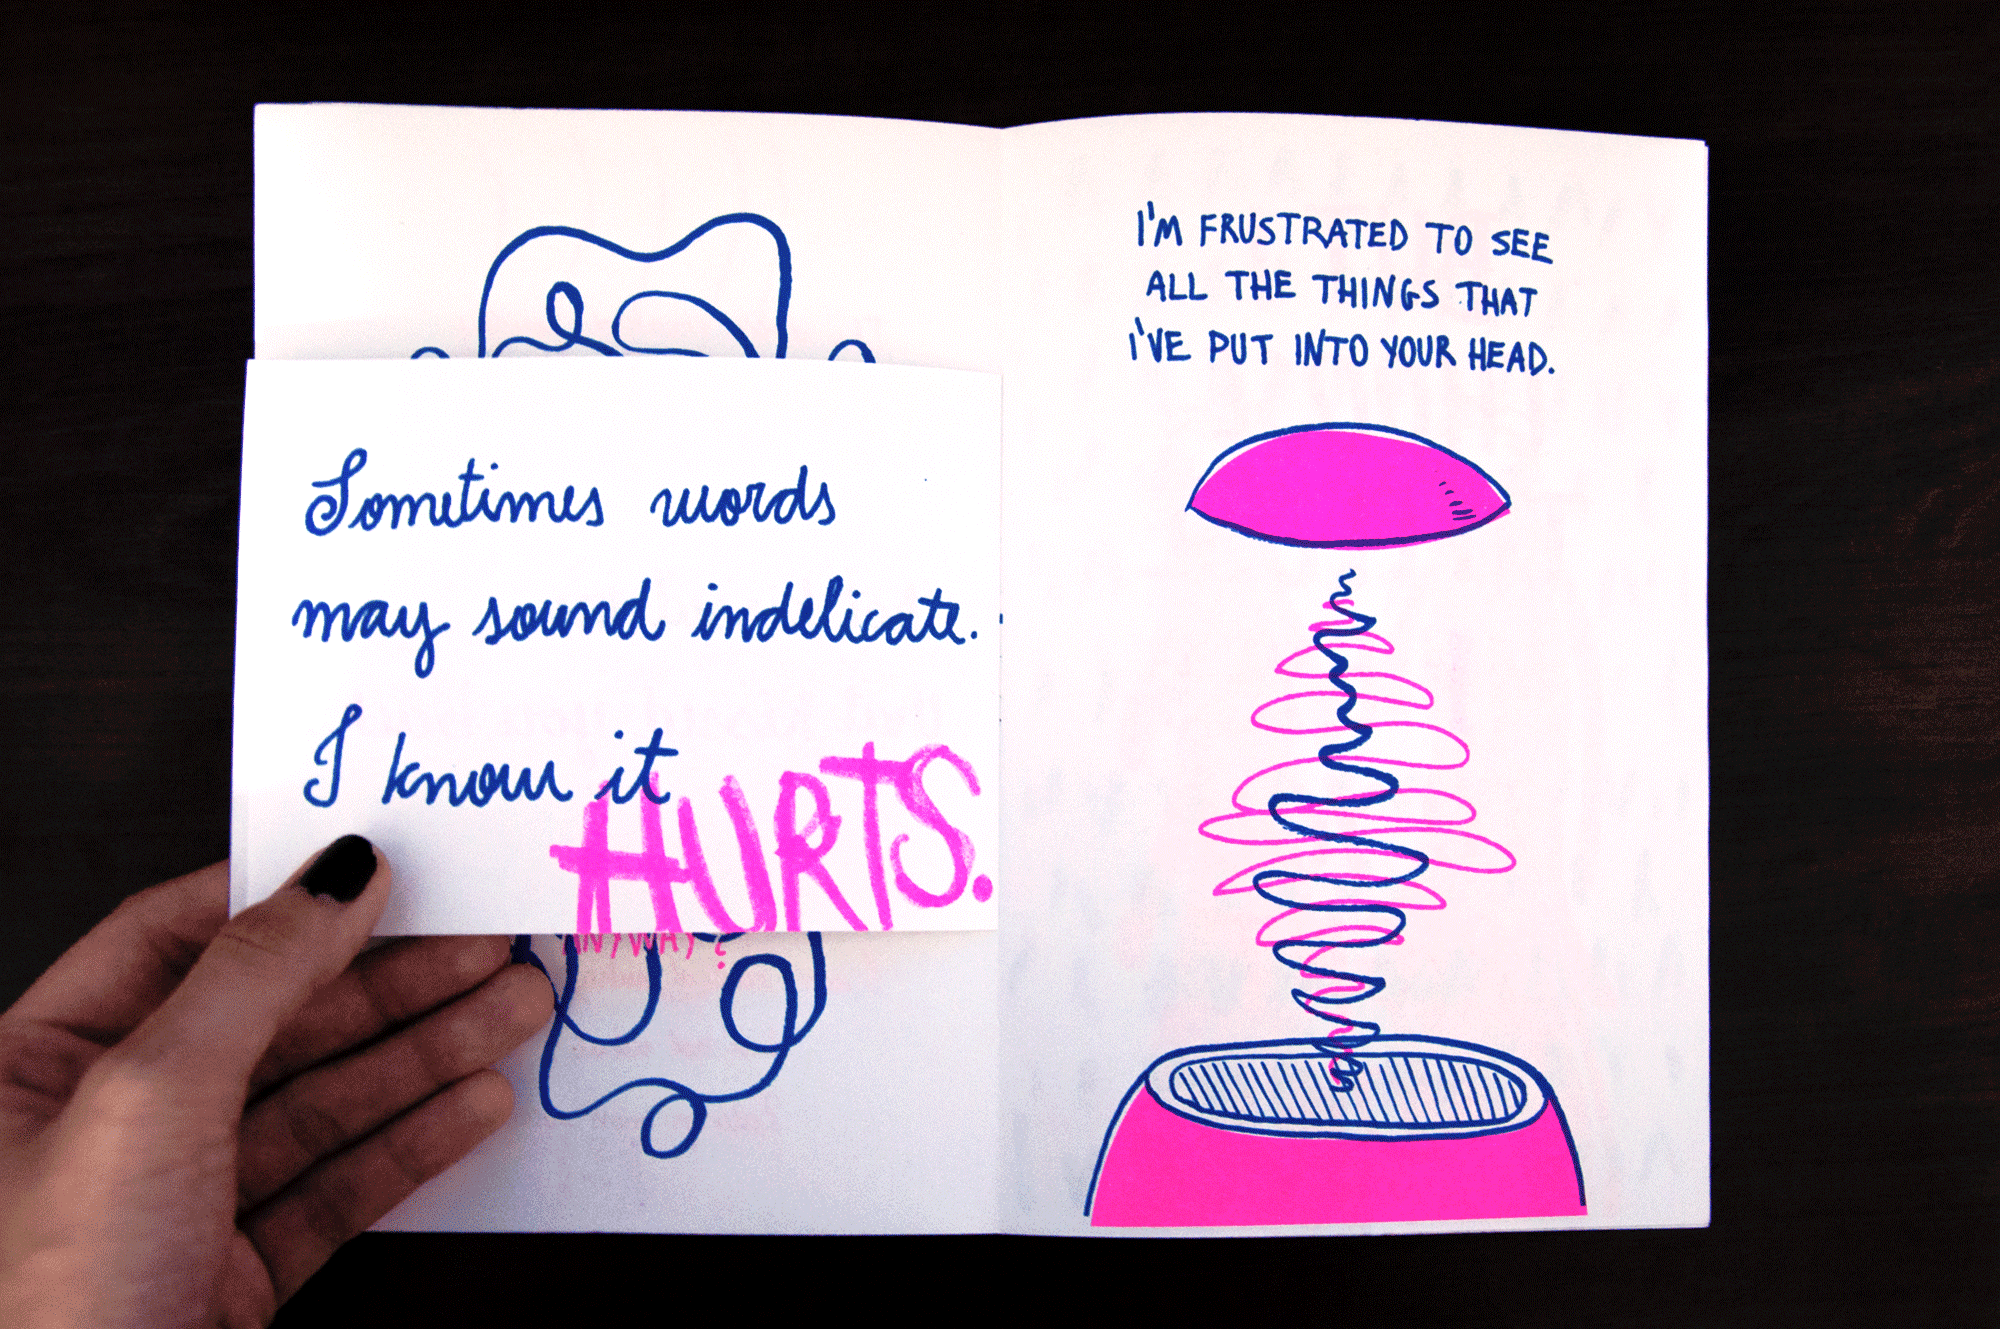 Sometimes words
may sound indelicate.
I know it
HURTS.
ANYWAY?
I'M FRUSTRATED TO SEE
ALL THE THINGS THAT
I'VE PUT INTO YOUR HEAD.